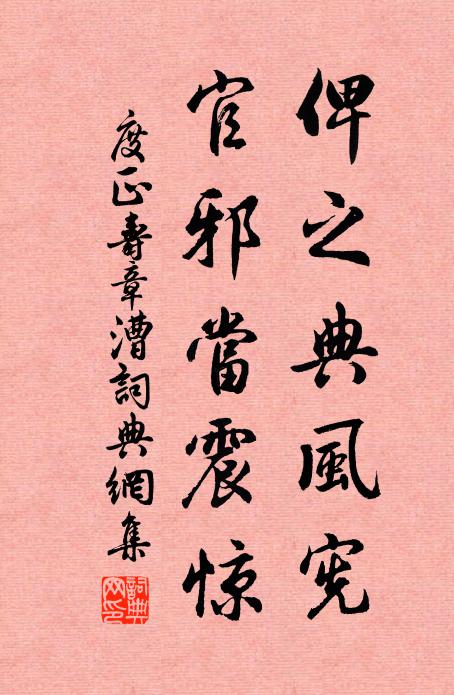 俾之典風宪
官邪當震惊
度正壽章漕詞典網集
詞典
网印